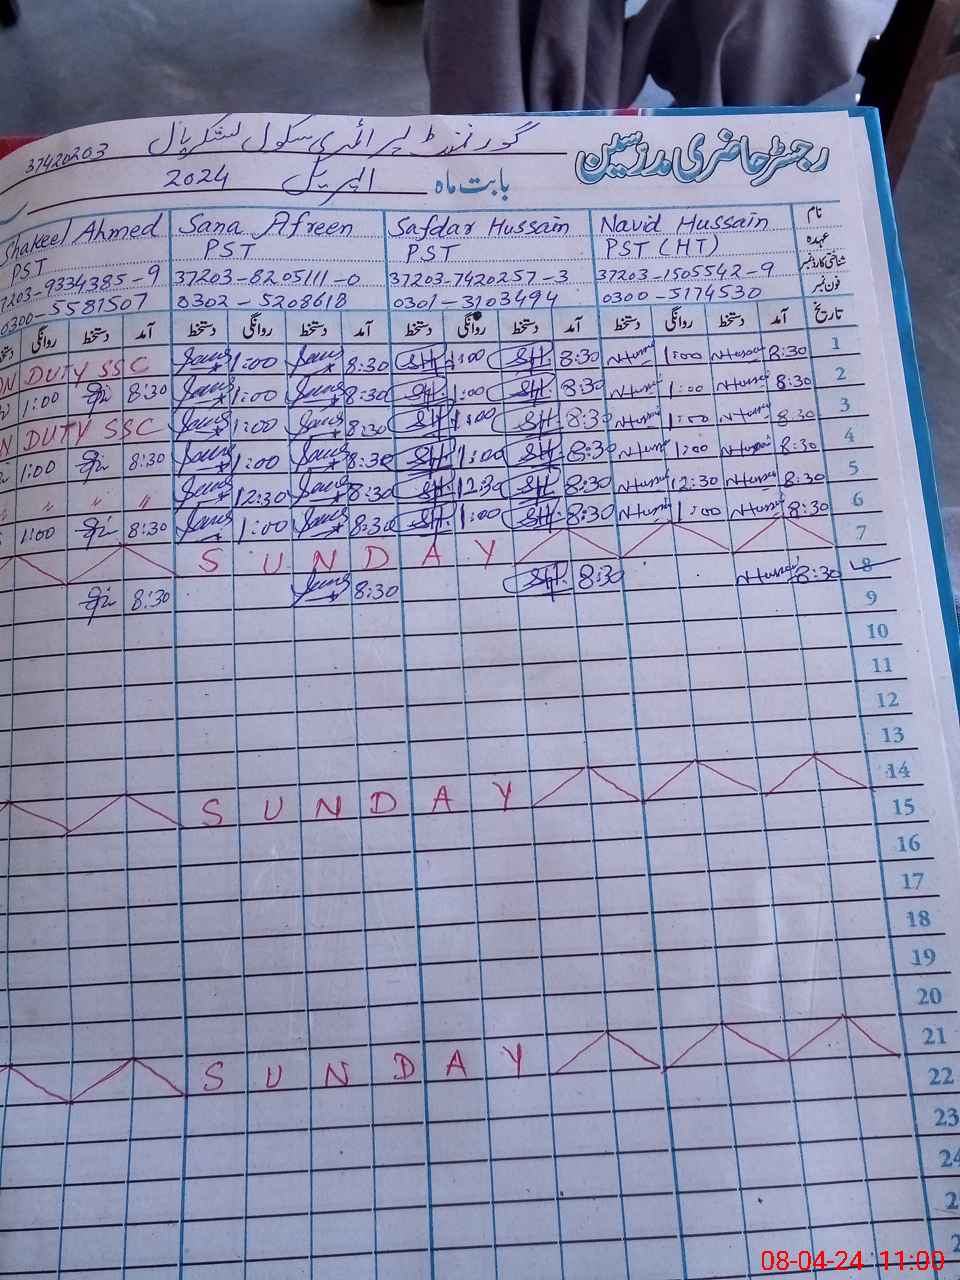 رجسٹر حاضری مدرسین
گورنمنٹ پرائمری سکول لشکریال 37420203
بابت ماہ اپریل 2024
نام Navid Hussain Safdar Hussain Sana Afreen Shakeel Ahmed
عہدہ PST (HT) PST PST PST
شناختی کارڈ نمبر 37203-1505542-9 37203-7420257-3 37203-8205111-0 7203-9334385-9
فون نمبر 0300-5174530 0301-3103494 0302-5208618 0300-5581507
تاریخ آمد دستخط روانگی دستخط آمد دستخط روانگی دستخط آمد دستخط روانگی دستخط آمد دستخط روانگی دستخط
1 8:30 1:00 8:30 SH. 1:00 SH. 8:30 1:00 ON DUTY SSC
2 8:30 1:00 8:30 SH. 1:00 SH. 8:30 1:00 8:30 1:00
3 8:30 1:00 8:30 SH. 1:00 SH. 8:30 1:00 N DUTY SSC
4 8:30 1:00 8:30 SH. 1:00 SH. 8:30 1:00 8:30 1:00
5 8:30 12:30 8:30 SH. 12:30 SH. 8:30 12:30 " " "
6 8:30 1:00 8:30 SH. 1:00 SH. 8:30 1:00 8:30 1:00
7 SUNDAY
8 8:30 8:30 SH. 8:30 8:30
9
10
11
12
13
14 SUNDAY
15
16
17
18
19
20
21 SUNDAY
22
23
24
2
2
08-04-24 11:00